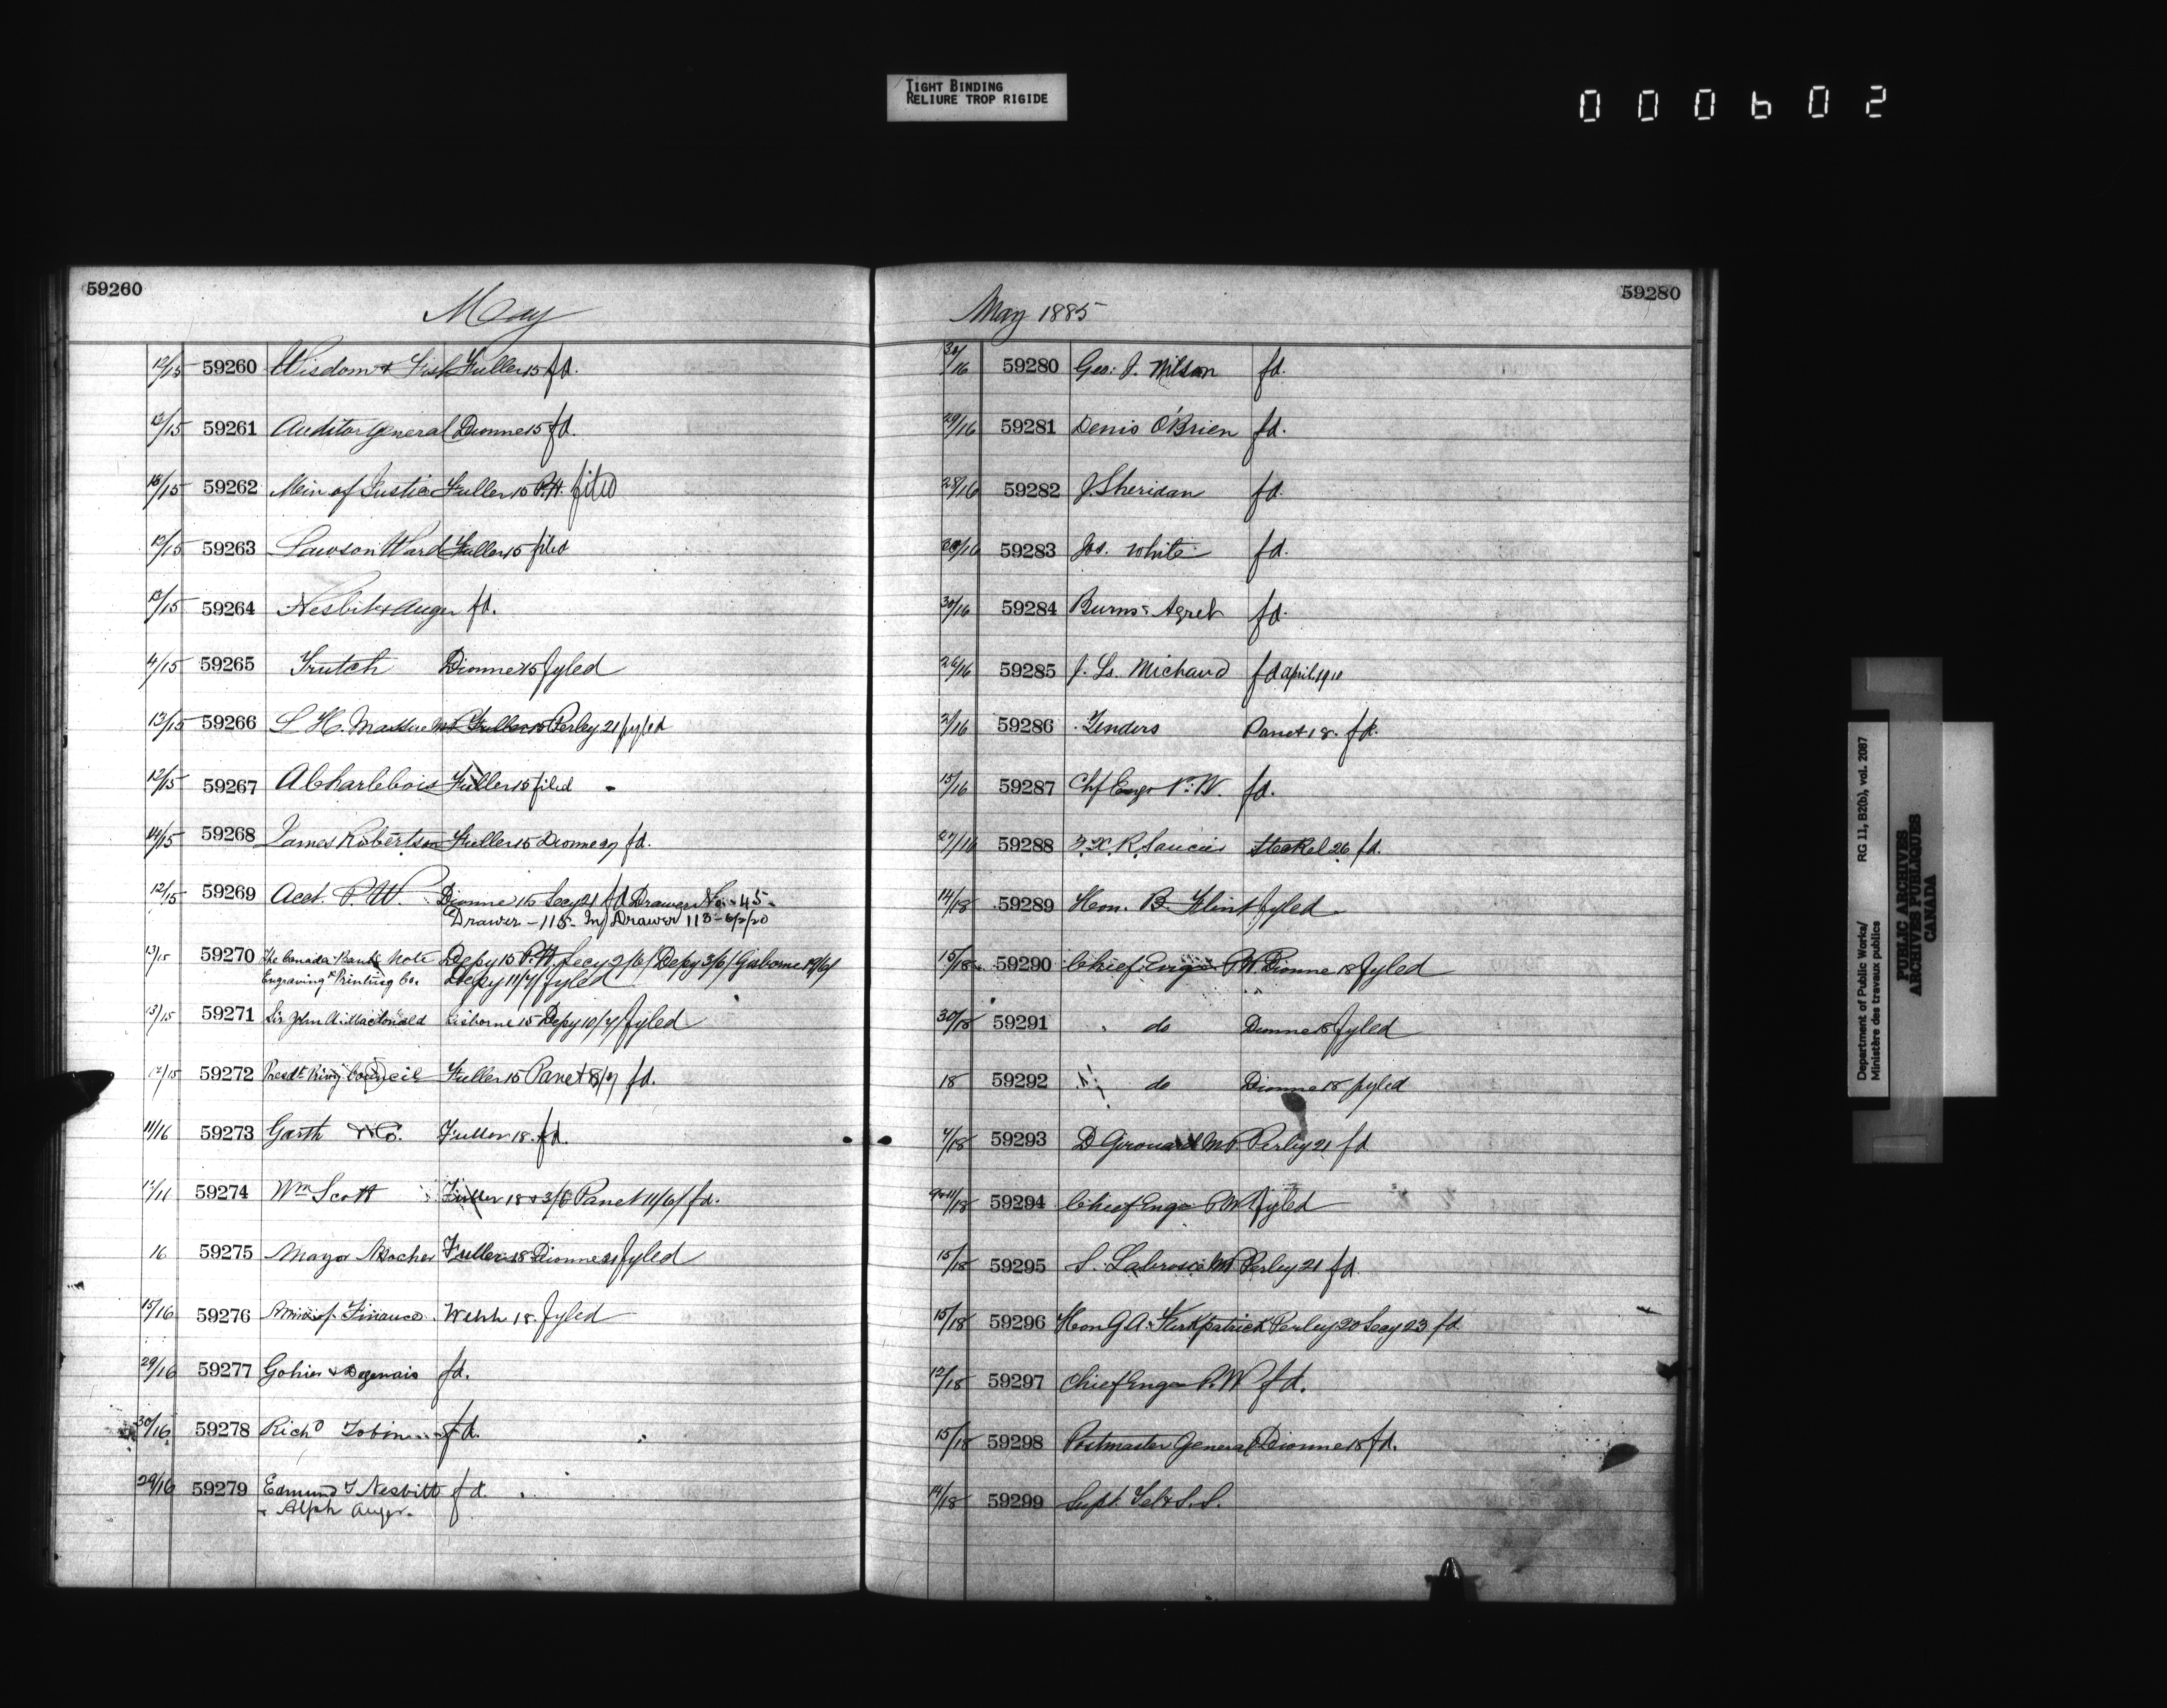 TIGHT BINDING
RELIURE TROP RIGIDE
000602
59260
May
12/15 59260 Wisdom & Fish Fuller 15 fd.
12/15 59261 Auditor General Dionne 15 fd.
15/15 59262 Min of Justice Fuller 15 P.H. filed
12/15 59263 Lawson Ward Fuller 15 filed
13/15 59264 Nesbit & Auger fd.
4/15 59265 Trutch Dionne 15 fyled
13/15 59266 L H. Massue MP Fuller 15 Perley 21 fyled
12/15 59267 A Charlebois Fuller 15 filed
14/15 59268 James Robertson Fuller 15 Dionne 29 fd.
12/15 59269 Acct. P. W. Dionne 16 Secy 21 fd Drawer No. 45
Drawer - 118 - In Drawer 113 -
13/15 59270 The Canada Bank Note Depy 15 P.H. Secy 2/6/ Depy 3/6/ Gisborne 19/6/
Engraving & Printing Co. Depy 11/7/ fyled
13/15 59271 Sir John A. Macdonald Gisborne 15 Depy 10/7/ fyled
12/15 59272 Presdt Privy Council Fuller 15 Panet 8/7 fd.
11/16 59273 Garth & Co. Fuller 18. fd.
12/16 59274 Wm Scott Fuller 18 & 3/6 Panet 11/6/ fd.
16 59275 Mayor Fuller 18 Dionne 21 fyled
15/16 59276 Min of Finance Webb 18. fyled
29/16 59277 Gohier & Dagenais fd.
30/16 59278 Richd Tobin fd.
29/16 59279 Edmund T Nesbitt fd.
& Alph Auger.
May 1885
59280
30/16 59280 Geo: J. Wilson fd.
29/16 59281 Denis O'Brien fd.
28/16 59282 J. Sheridan fd.
30/16 59283 Jos. White fd.
30/16 59284 Burns Agret fd.
26/16 59285 J. Ls. Michaud fd April 1910
2/16 59286 Tenders Panet 18. fd.
15/16 59287 Chf Engr P. W. fd.
27/16 59288 F. X. R. Saucier Steckel 26 fd.
14/18 59289 Hon. B. Flint fyled
15/18 59290 Chief Engr P.W. Dionne 18 fyled
30/18 59291 do Dionne 18 fyled
18 59292 do Dionne 18 fyled
4/18 59293 D Girouard M.P. Perley 21 fd
59294 Chief Engr P.W fyled
15/18 59295 S. Labrosse MP Perley 21 fd.
15/18 59296 Hon G A. Kirkpatrick Perley 20 Secy 23 fd
12/18 59297 Chief Engr P.W fd.
15/18 59298 Postmaster General Dionne 18 fd.
14/18 59299 Supt. Tel & S. S.
Department of Public Works/ RG 11, B2(b), vol. 2087
Ministère des travaux publics
PUBLIC ARCHIVES
ARCHIVES PUBLIQUES
CANADA